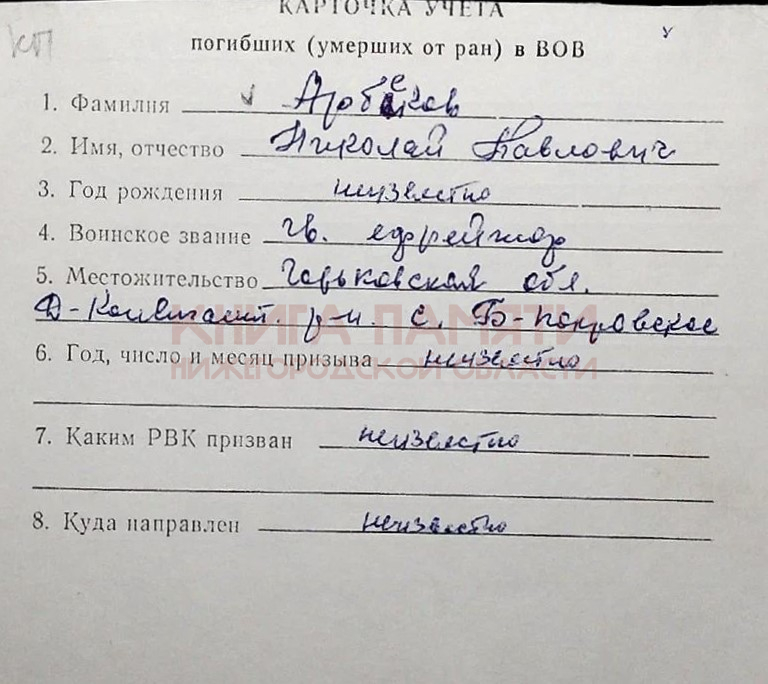 КАРТОЧКА УЧЕТА
КП
погибших (умерших от ран) в ВОВ
у
1. Фамилия Арбеков
2. Имя, отчество Николай Павлович
3. Год рождения неизвестно
4. Воинское звание гв. ефрейтор
5. Местожительство Горьковская обл.
Д-Константт. р-н. с. Б-покровское
КНИГА ПАМЯТИ
6. Год, число и месяц призыва неизвестно
НИЖЕГОРОДСКОЙ ОБЛАСТИ
7. Каким РВК призван неизвестно
8. Куда направлен неизвестно